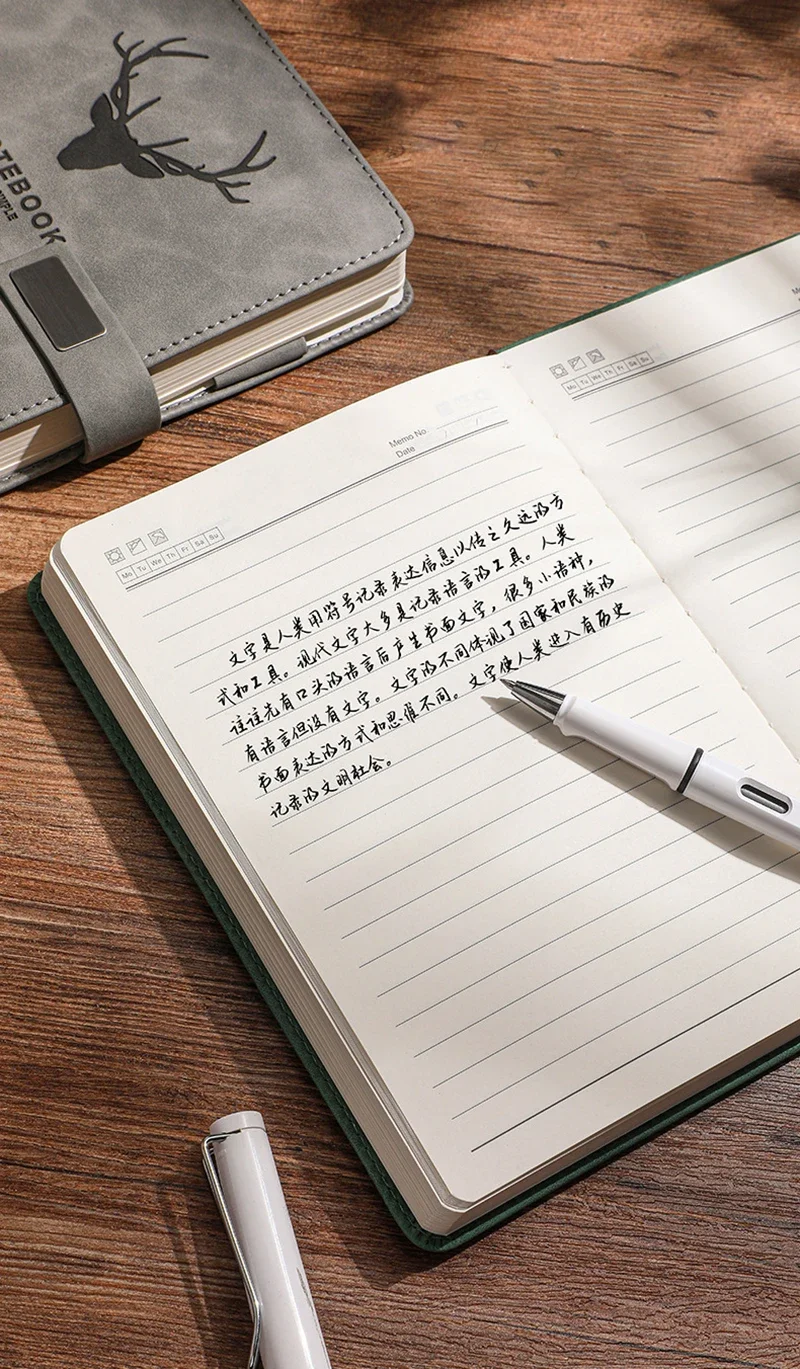 NOTEBOOK
Memo No.
Date
Mo Tu We Th Fr Sa Su
文字是人类用符号记录表达信息以传之久远的方
式和工具。现代文字大多是记录语言的工具。人类
往往先有口头的语言后产生书面文字，很多小语种，
有语言但没有文字。文字的不同体现了国家和民族的
书面表达的方式和思维不同。文字使人类进入有历史
记录的文明社会。
Mo Tu We Th Fr Sa Su